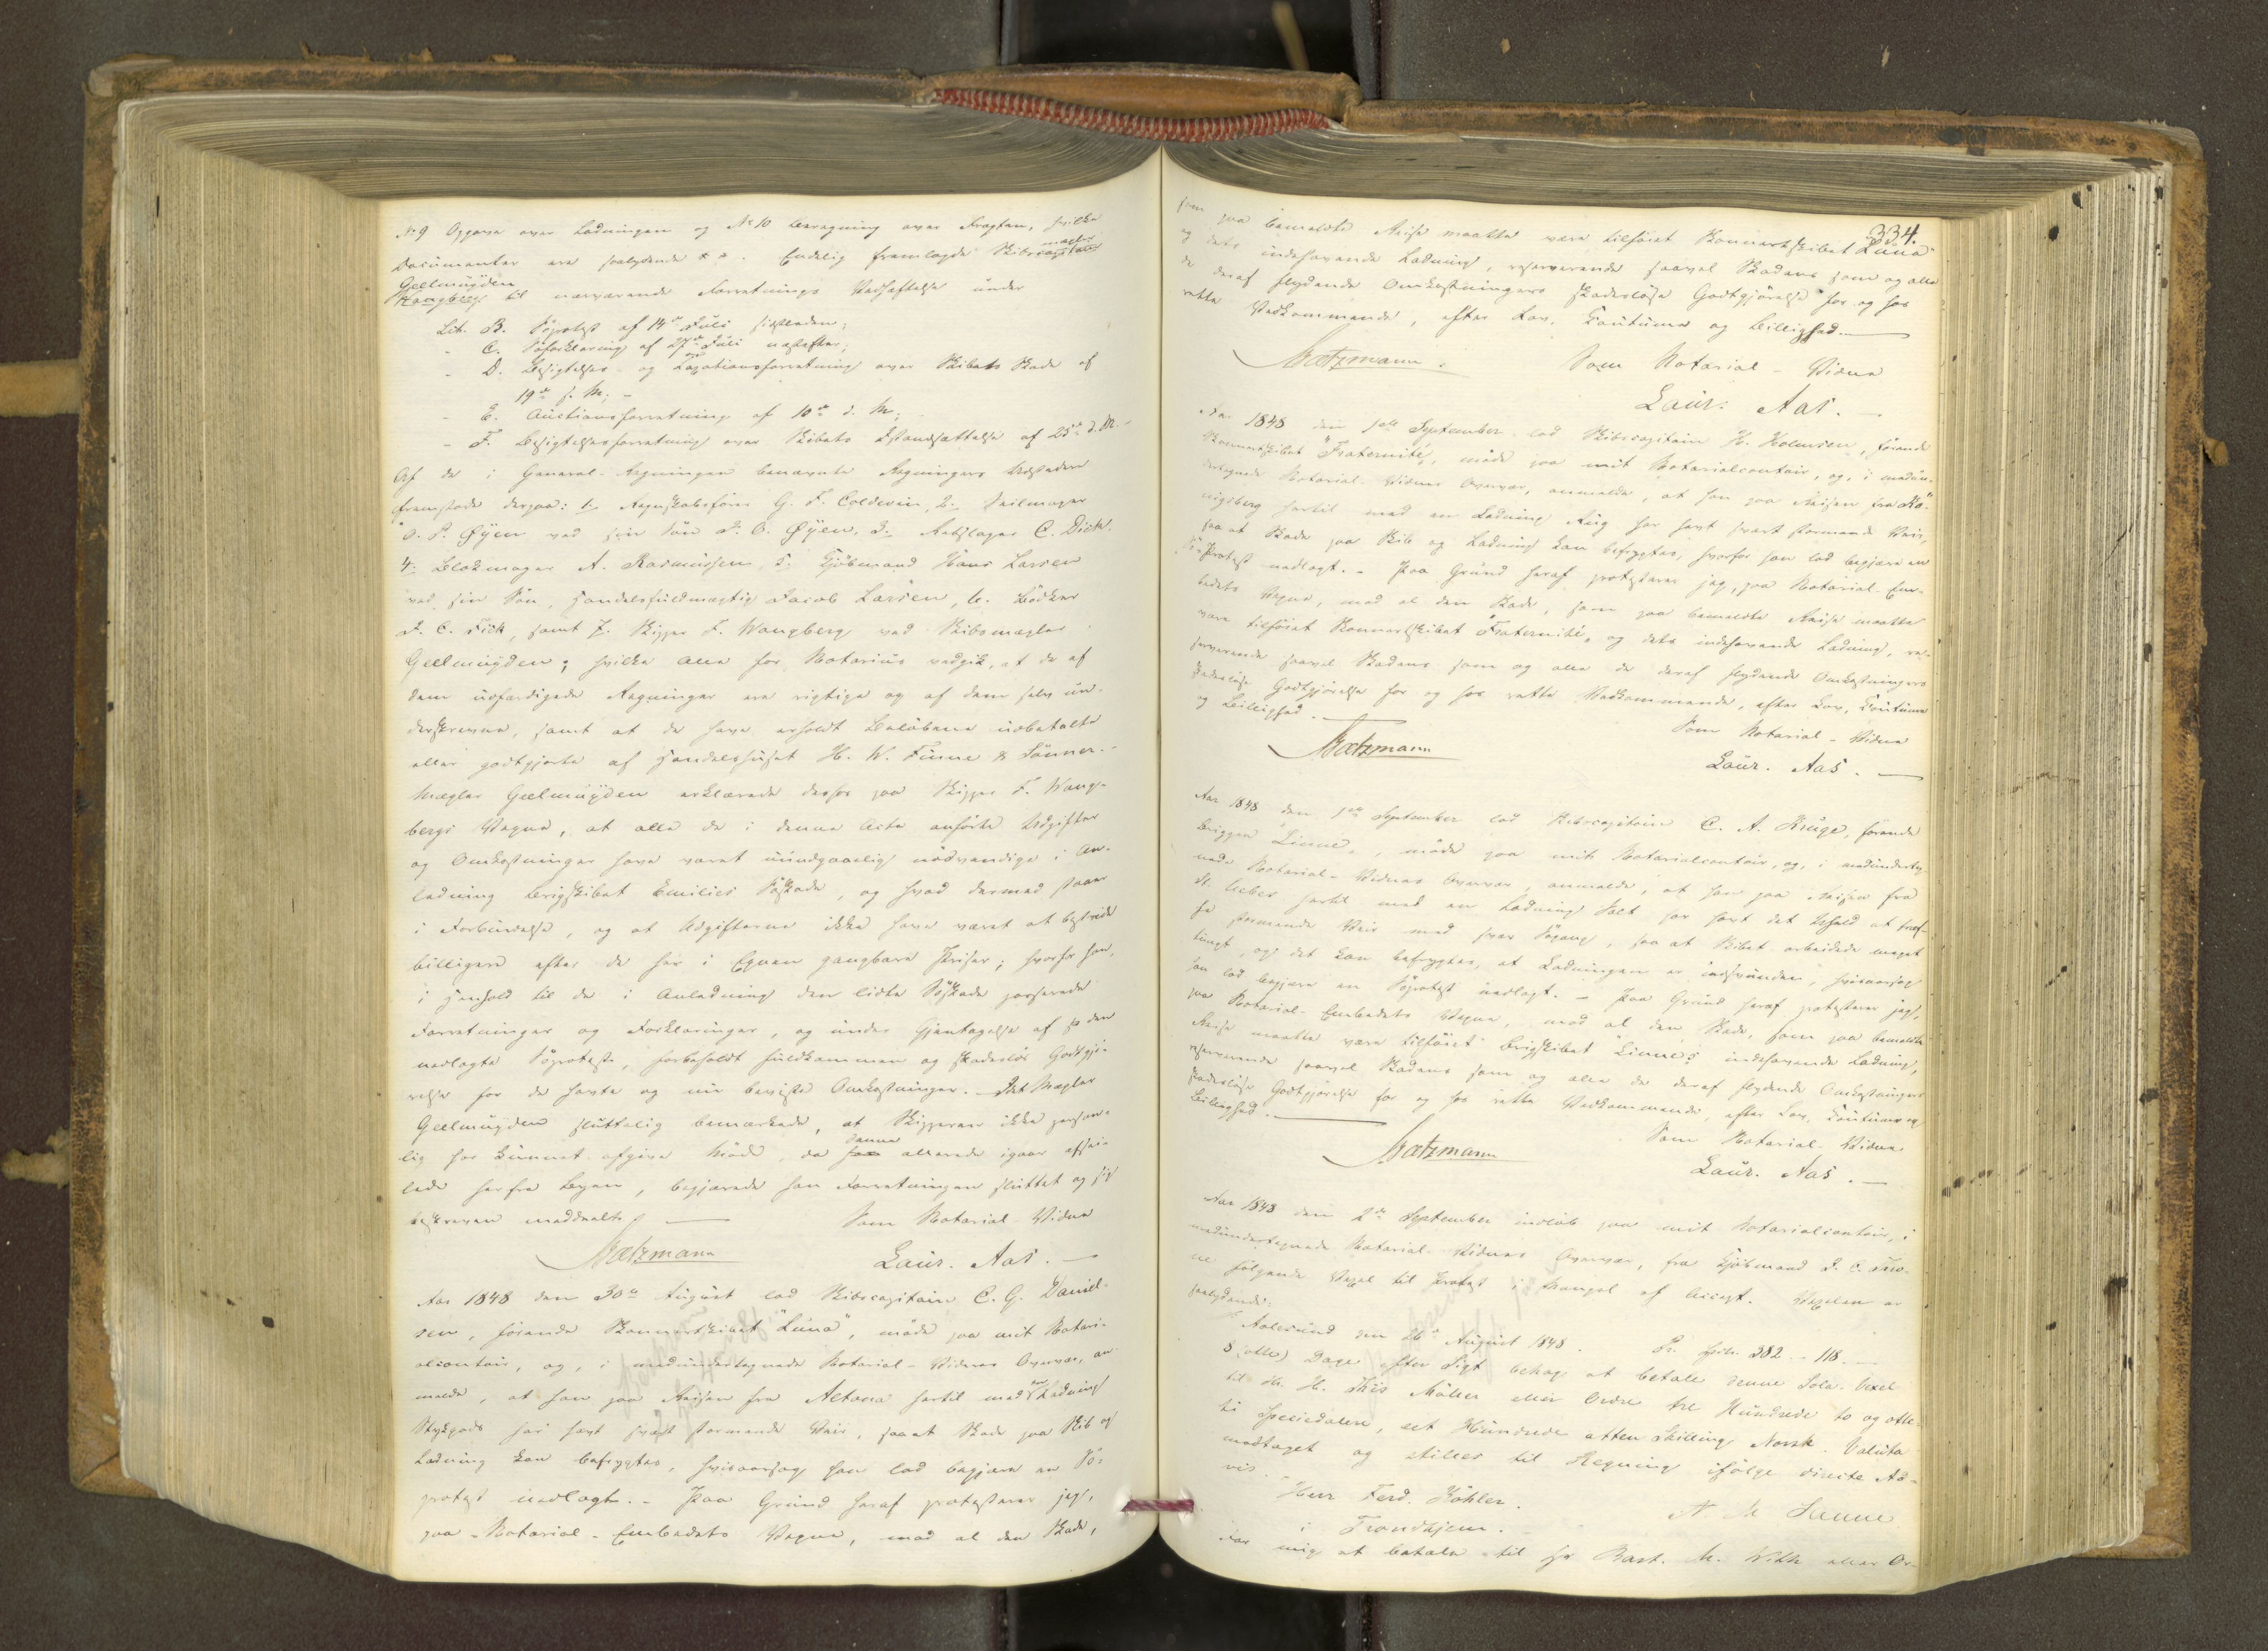 No 9 Opgave over Ladningen og No 10 Beregning over Fragten, hvilke
Documenter ere saalydende &c. Endelig fremlagde Skibsmægler
Geelmuÿden
til nærværende Forretnings Vedhæftelse under
Lit. B. Søprotest af 14de Juli sidstleden;
- C. Søforklaring af 27de Juli næstefter;
- D. Besigtelses- og Taxationsforretning over Skibets Skade af
19de s. M; -
- E. Auctionsforretning af 10de d. M;
- F. Besigtelsesforretning over Skibets Istandsættelse af 25de d. M. -
Af de i General-Regningen benævnte Regningers Udstedere
fremstode derpaa: 1. Regnskabsfører G. F. Coldevin, 2. Seilmager
O. P. Øÿen ved sin Søn P. O. Øÿen, 3. Rebslager C. Dick
4. Blokmager A. Rasmussen, 5. Kjöbmand Hans Larsen
ved sin Søn, Handelsfuldmægtig Jacob Larsen, 6. Bødker
J. C. Fick, samt 7. Skipper F. Wangberg ved Skibsmægler
Geelmuÿden; hvilke alle for Notarius vedgik, at de af
dem udfærdigede Regninger ere rigtige og af dem selv un-
derskrevne, samt at de have erholdt Beløbene udbetalte
eller godtgjorte af Handelshuset H. W. Finne & Sønner. -
Mægler Geelmuÿden erklærede derhos paa Skipper F. Wang-
bergs Vegne, at alle de i denne Acte anførte Udgifter
og Omkostninger have været uundgaaelig nødvendige i An-
ledning Brigskibet Emilies Søskade, og hvad dermed staaer
i Forbindelse, og at Udgifterne ikke have været at bestride
billigere efter de her i Egnen gangbare Priser; hvorfor han,
i Henhold til de i Anledning den lidte Søskade passerede
Forretninger og Forklaringer, og under Gjentagelse af den
nedlagte Søprotest, forbeholdt fuldkommen og skadesløs Godtgjö-
relse for de havte og nu beviste Omkostninger. - Idet Mægler
Geelmuÿden sluttelig bemærkede, at Skipperen ikke person-
lig har kunnet afgive Møde, da denne allerede igaar afsei-
lede herfra Byen, begjærede han Forretningen sluttet og sig
beskreven meddeelt. Som Notarial-Vidne
Motzmann Laur. Aas. -
Aar 1848 den 30te August lod Skibscapitain C. G. Daniel-
sen, førende Skonnertskibet "Luna", møde paa mit Notari-
alcontoir, og, i medundertegnede Notarial-Vidnes Overvær, an-
melde, at han paa Reisen fra Altona hertil med en Ladning
Stykgods har havt svært stormende Veir, saa at Skade paa Skib og
Ladning kan befrygtes, hvisaarsag han lod begjære en Sø-
protest nedlagt. - Paa Grund heraf protesterer jeg,
paa Notarial-Embedets Vegne, mod al den Skade,
334.
som paa bemeldte Reise maatte være tilføiet Skonnertskibet "Luna"
og dets indehavende Ladning, reserverende saavel Skadens som og alle
de deraf flydende Omkostningers skadesløse Godtgjørelse for og hos
rette Vedkommende, efter Lov, Coutume og Billighed. -
Motzmann. Som Notarial-Vidne
Laur. Aas. -
Aar 1848 den 1ste September lod Skibscapitain H. Holmsen, førende
Skonnertskibet "Fraternité", møde paa mit Notarialcontoir, og, i medun-
dertegnede Notarial-Vidnes Overvær, anmelde, at han paa Reisen fra Kø-
nigsberg hertil med en Ladning Rug har havt svært stormende Veir,
saa at Skade paa Skib og Ladning kan befrygtes, hvorfor han lod begjære en
Sø-Protest nedlagt. - Paa Grund heraf protesterer jeg, paa Notarial-Em-
bedets Vegne, mod al den Skade, som paa bemeldte Reise maatte
være tilføiet Skonnertskibet "Fraternité" og dets indehavende Ladning, re-
serverende saavel Skadens som og alle de deraf flydende Omkostningers
skadesløse Godtgjørelse for og hos rette Vedkommende, efter Lov, Coutume
og Billighed. -
Som Notarial-Vidne
Motzmann Laur. Aas. -
Aar 1848 den 1ste September lod Skibscapitain C. A. Kruge, førende
Briggen "Linné", møde paa mit Notarialcontoir, og, i medunderteg-
nede Notarial-Vidnes Overvær, anmelde, at han paa Reisen fra
St. Uebes hertil med en Ladning Salt har havt det Uheld at træf-
fe stormende Veir med svær Søgang, saa at Skibet arbeidede meget
tungt, og det kan befrygtes, at Ladningen er indsvunden, hvisaarsag
han lod begjære en Søprotest nedlagt. - Paa Grund heraf protesterer jeg,
paa Notarial-Embedets Vegne, mod al den Skade, som paa bemeldte
Reise maatte være tilføiet Brigskibet "Linné's" indehavende Ladning,
reserverende saavel Skadens som og alle de deraf flydende Omkostningers
skadesløse Godtgjørelse for og hos rette Vedkommende, efter Lov, Coutume og
Billighed. -
Som Notarial-Vidne
Motzmann Laur. Aas. -
Aar 1848 den 2den September indløb paa mit Notarialcontoir, i
medundertegnede Notarial-Vidnes Overvær, fra Kjøbmand J. C.
følgende Vexel til Protest i Mangel af Accept. Vexelen er
saalydende:
"Aalesund den 26de August 1848. Pr. Spd. 382 - 118. -
8 (otte) Dage efter Sigt behag at betale denne Sola-Vexel
til Hr. H. Thiis Möller eller Ordre tre Hundrede to og otte-
ti Speciedaler, et Hundrede atten Skilling Norsk. Valuta
modtaget og stilles til Regning ifølge direite Ad-
vis.
Herr Ferd. Köhler.
i Trondhjem. -
For mig at betale til Hr Bast. M. With eller Or-